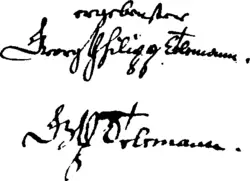 ergebenster
Georg Philipp Telemann.
GP Telemann.